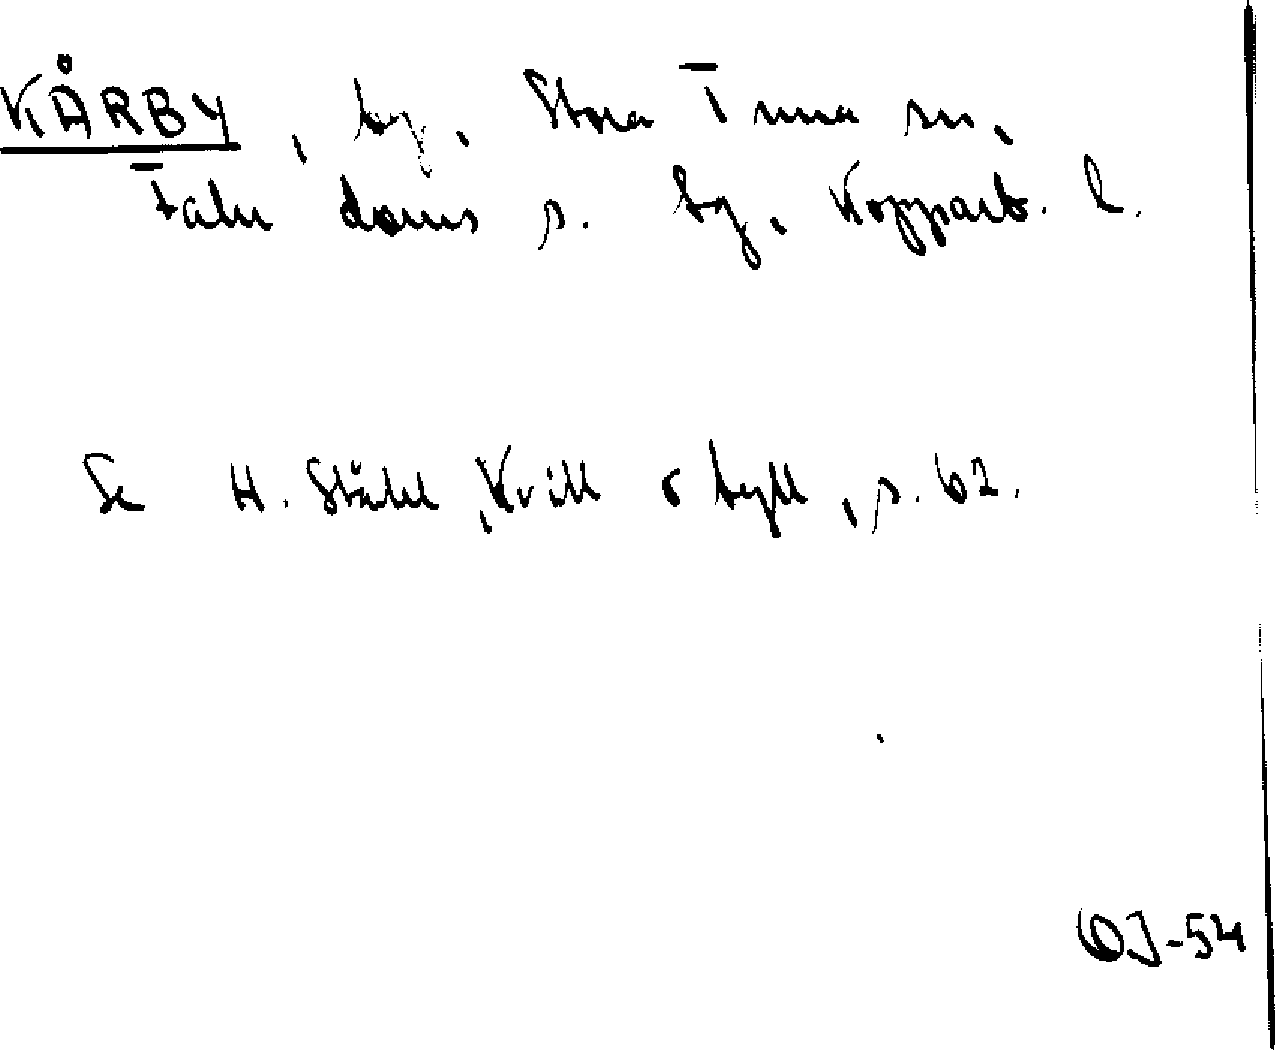 KÅRBY, by, Stora Tuna sn,
Falu doms s. tg, Kopparb. l.
Se H. Ståhl, Kvill o tyll, s. 62.
OJ-54